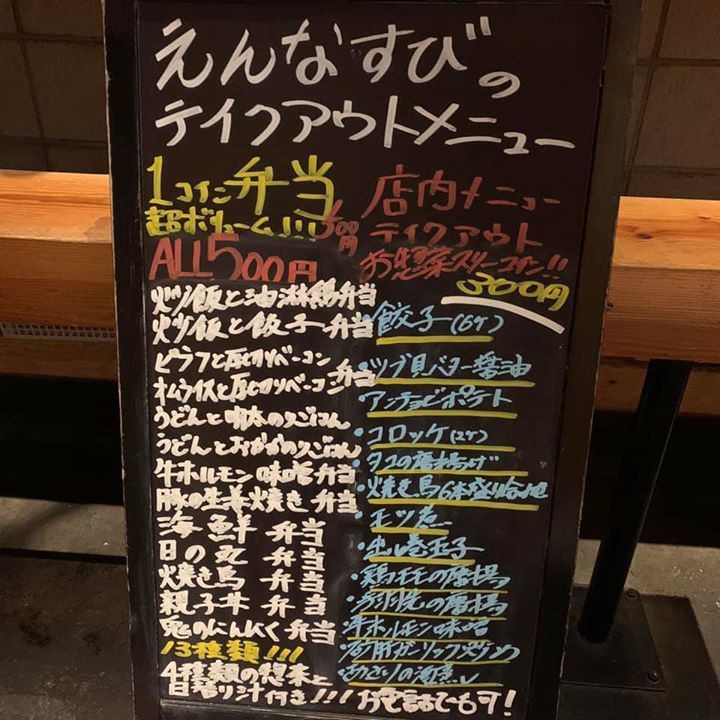 えんなすびの
テイクアウトメニュー
1コイン弁当
超ボリューム!!!
500円
ALL500円
炒飯と油淋鶏弁当
炒飯と餃子弁当
ピラフと厚切りベーコン
オムライスと厚切りベーコン弁当
うどんと明太のりごはん
うどんとおかかのりごはん
牛ホルモン味噌弁当
豚の生姜焼き弁当
海鮮弁当
日の丸弁当
焼き鳥弁当
親子丼弁当
鬼のにんにく弁当
13種類!!!
4種類の惣来と
日替り汁付き!!!
店内メニュー
テイクアウト
お惣菜スリーコイン!!
300円
・餃子(6ケ)
・ツブ貝バター醤油
・アンチョビポテト
・コロッケ(2ケ)
・タコの唐揚げ
・焼き鳥6本盛り合せ
・モツ煮
・出し巻玉子
・鶏モモの唐揚
・の唐揚
・牛ホルモン味噌
・ガーリック炒め
・あさりの酒蒸し
お電話でもす!